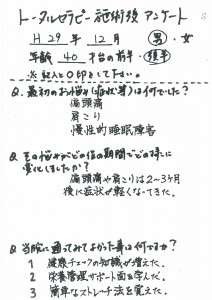 トータルセラピー施術後アンケート
H 29 年 12 月 男・女
年齢 40 才台の前半・後半
※記入と○印をして下さい。
Q. 最初のお悩み(症状等)は何でした?
偏頭痛
肩こり
慢性的睡眠障害
Q. その悩みがどの位の期間でどの様に
変化しましたか?
偏頭痛や肩こりは2〜3ヶ月
後に症状が軽くなってきた。
Q. 当院に通ってみてよかった事は何ですか?
1 健康チェックの知識が増えた。
2 栄養管理サポート面を学んだ。
3 簡単なストレッチ法を覚えた。